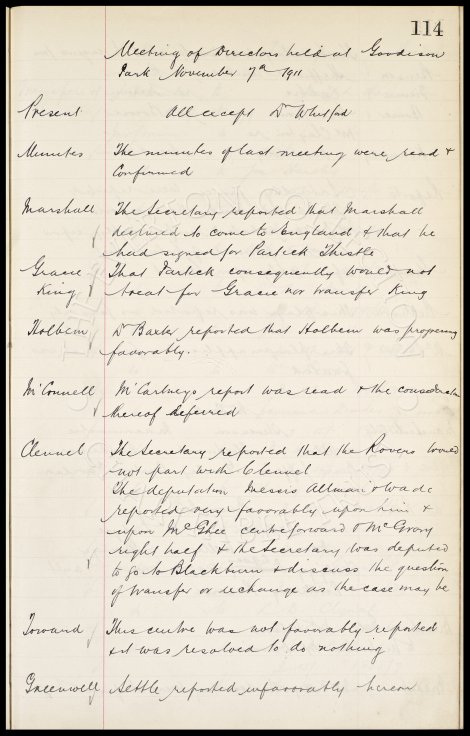 114
Meeting of Directors held at Goodison
Park November 7th 1911
Present All except Dr Whitford
Minutes The minutes of last meeting were read &
Confirmed
Marshall The Secretary reported that Marshall
declined to come to England & that he
had signed for Partick Thistle
Gracie That Partick consequently would not
King treat for Gracie nor transfer King
Holbem Dr Baxter reported that Holbem was progressing
favorably.
McConnell McCartneys report was read & the consideration
thereof deferred
Clennel The Secretary reported that the Rovers would
not part with Clennel
The deputation Messrs Allman & Wade
reported very favorably upon him &
upon McGhee centreforward & McGrory
right half & the Secretary was deputed
to go to Blackburn & discuss the question
of transfer or exchange as the case may be
Toward This centre was not favorably reported
& it was resolved to do nothing
Greenwell Settle reported unfavorably hereon